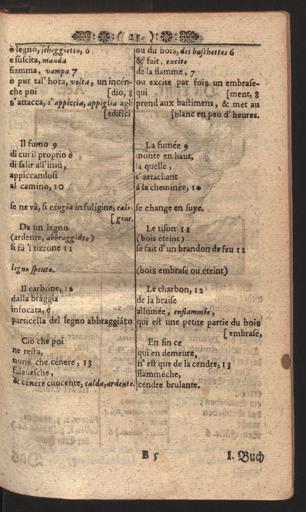 ( 25. )
è legno, scheggietto, 6
e suscita, manda
fiamma, vampa 7
o put tal' hora, volta, un incén-
che poi [dio, 8
s'attacca, s'appiccia, appiglia agli
[edifici
Il fumo 9
di cui'l proprio è
di salir all'insù,
appiccandosi
al camino, 10
se ne và, si
in fuligine, cali-
[gine.
Da un legno
(ardente, abbraggiato)
si fà 'l tizzone 11
legno spento.
Il carbone, 12
dalla braggia
infocata, è
particella del legno abbraggiáto
Ciò che poi
ne resta,
nomi che cénere, 13
falavesche,
& cénere cuocente, calda, ardente.
ou du bois, des buschettes 6
& fait, excite
de la fiamme, 7
ou excite par fois un embrase-
qui [ment, 8
prend aux bastimens, & met au
[blanc en peu d'heures.
La fumée 9
monte en haut,
la quelle,
s'attachant
á la cheminée, 10
se change en suye.
Le tison 11
(bois éteint)
se fait d'un brandon de feu 11
(bois embrasé ou éteint)
Le charbon, 12
de la braise
allumée, enflammée,
qui est une petite partie du bois
[embrasé,
En fin ce
qui en demeure,
n'est que de la cendre, 13
flammèche,
cendre brulante.
B 5
I. Buch